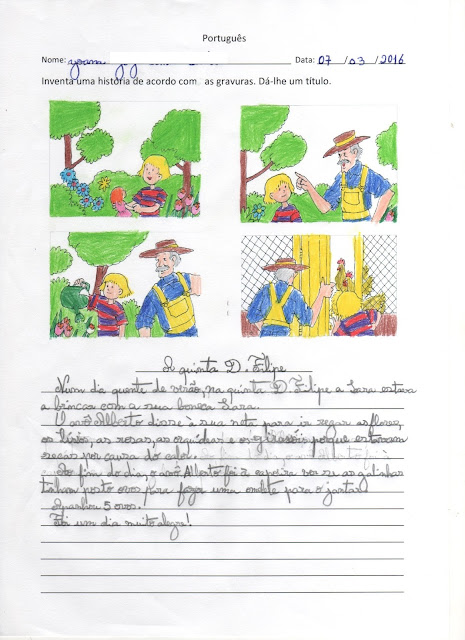 Português
Nome: Joam Data: 07 /03 /2016
Inventa uma história de acordo com as gravuras. Dá-lhe um título.
A quinta D. Filipe
Num dia quente de verão, na quinta D Filipe a Sara estava
a brincar com a sua boneca Sara.
O avô Alberto disse à sua neta para ir regar as flores,
os lírios, as rosas, as orquídeas e os girassóis porque estavam
secas por causa do calor.
Ao fim do dia, o avô Alberto foi à capoeira ver se as galinhas
tinham posto ovos para fazer uma omelete para o jantar.
Apanhou 5 ovos.
Foi um dia muito alegre!